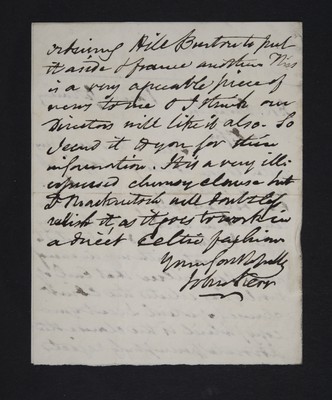 Hill Burton to put
it aside & frame another. This
is a very agreeable piece of
news to me & I think our
Directors will like it also. So
I send it to you for their
information. It is a very ill-
expressed clumsy clause but
Mackintosh will doubtless
relish it as it goes to work in
a direct Celtic fashion
Yours faithfully
John